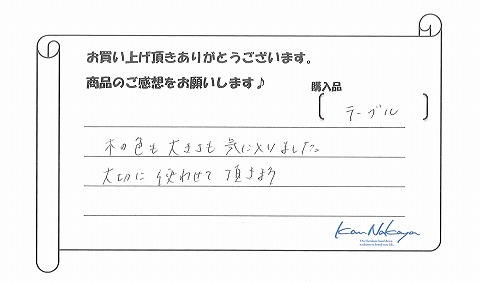 お買い上げ頂きありがとうございます。
商品のご感想をお願いします♪
購入品
テーブル
木の色も大きさも気に入りました。
大切に使わせて頂きます
Kan Nakaya